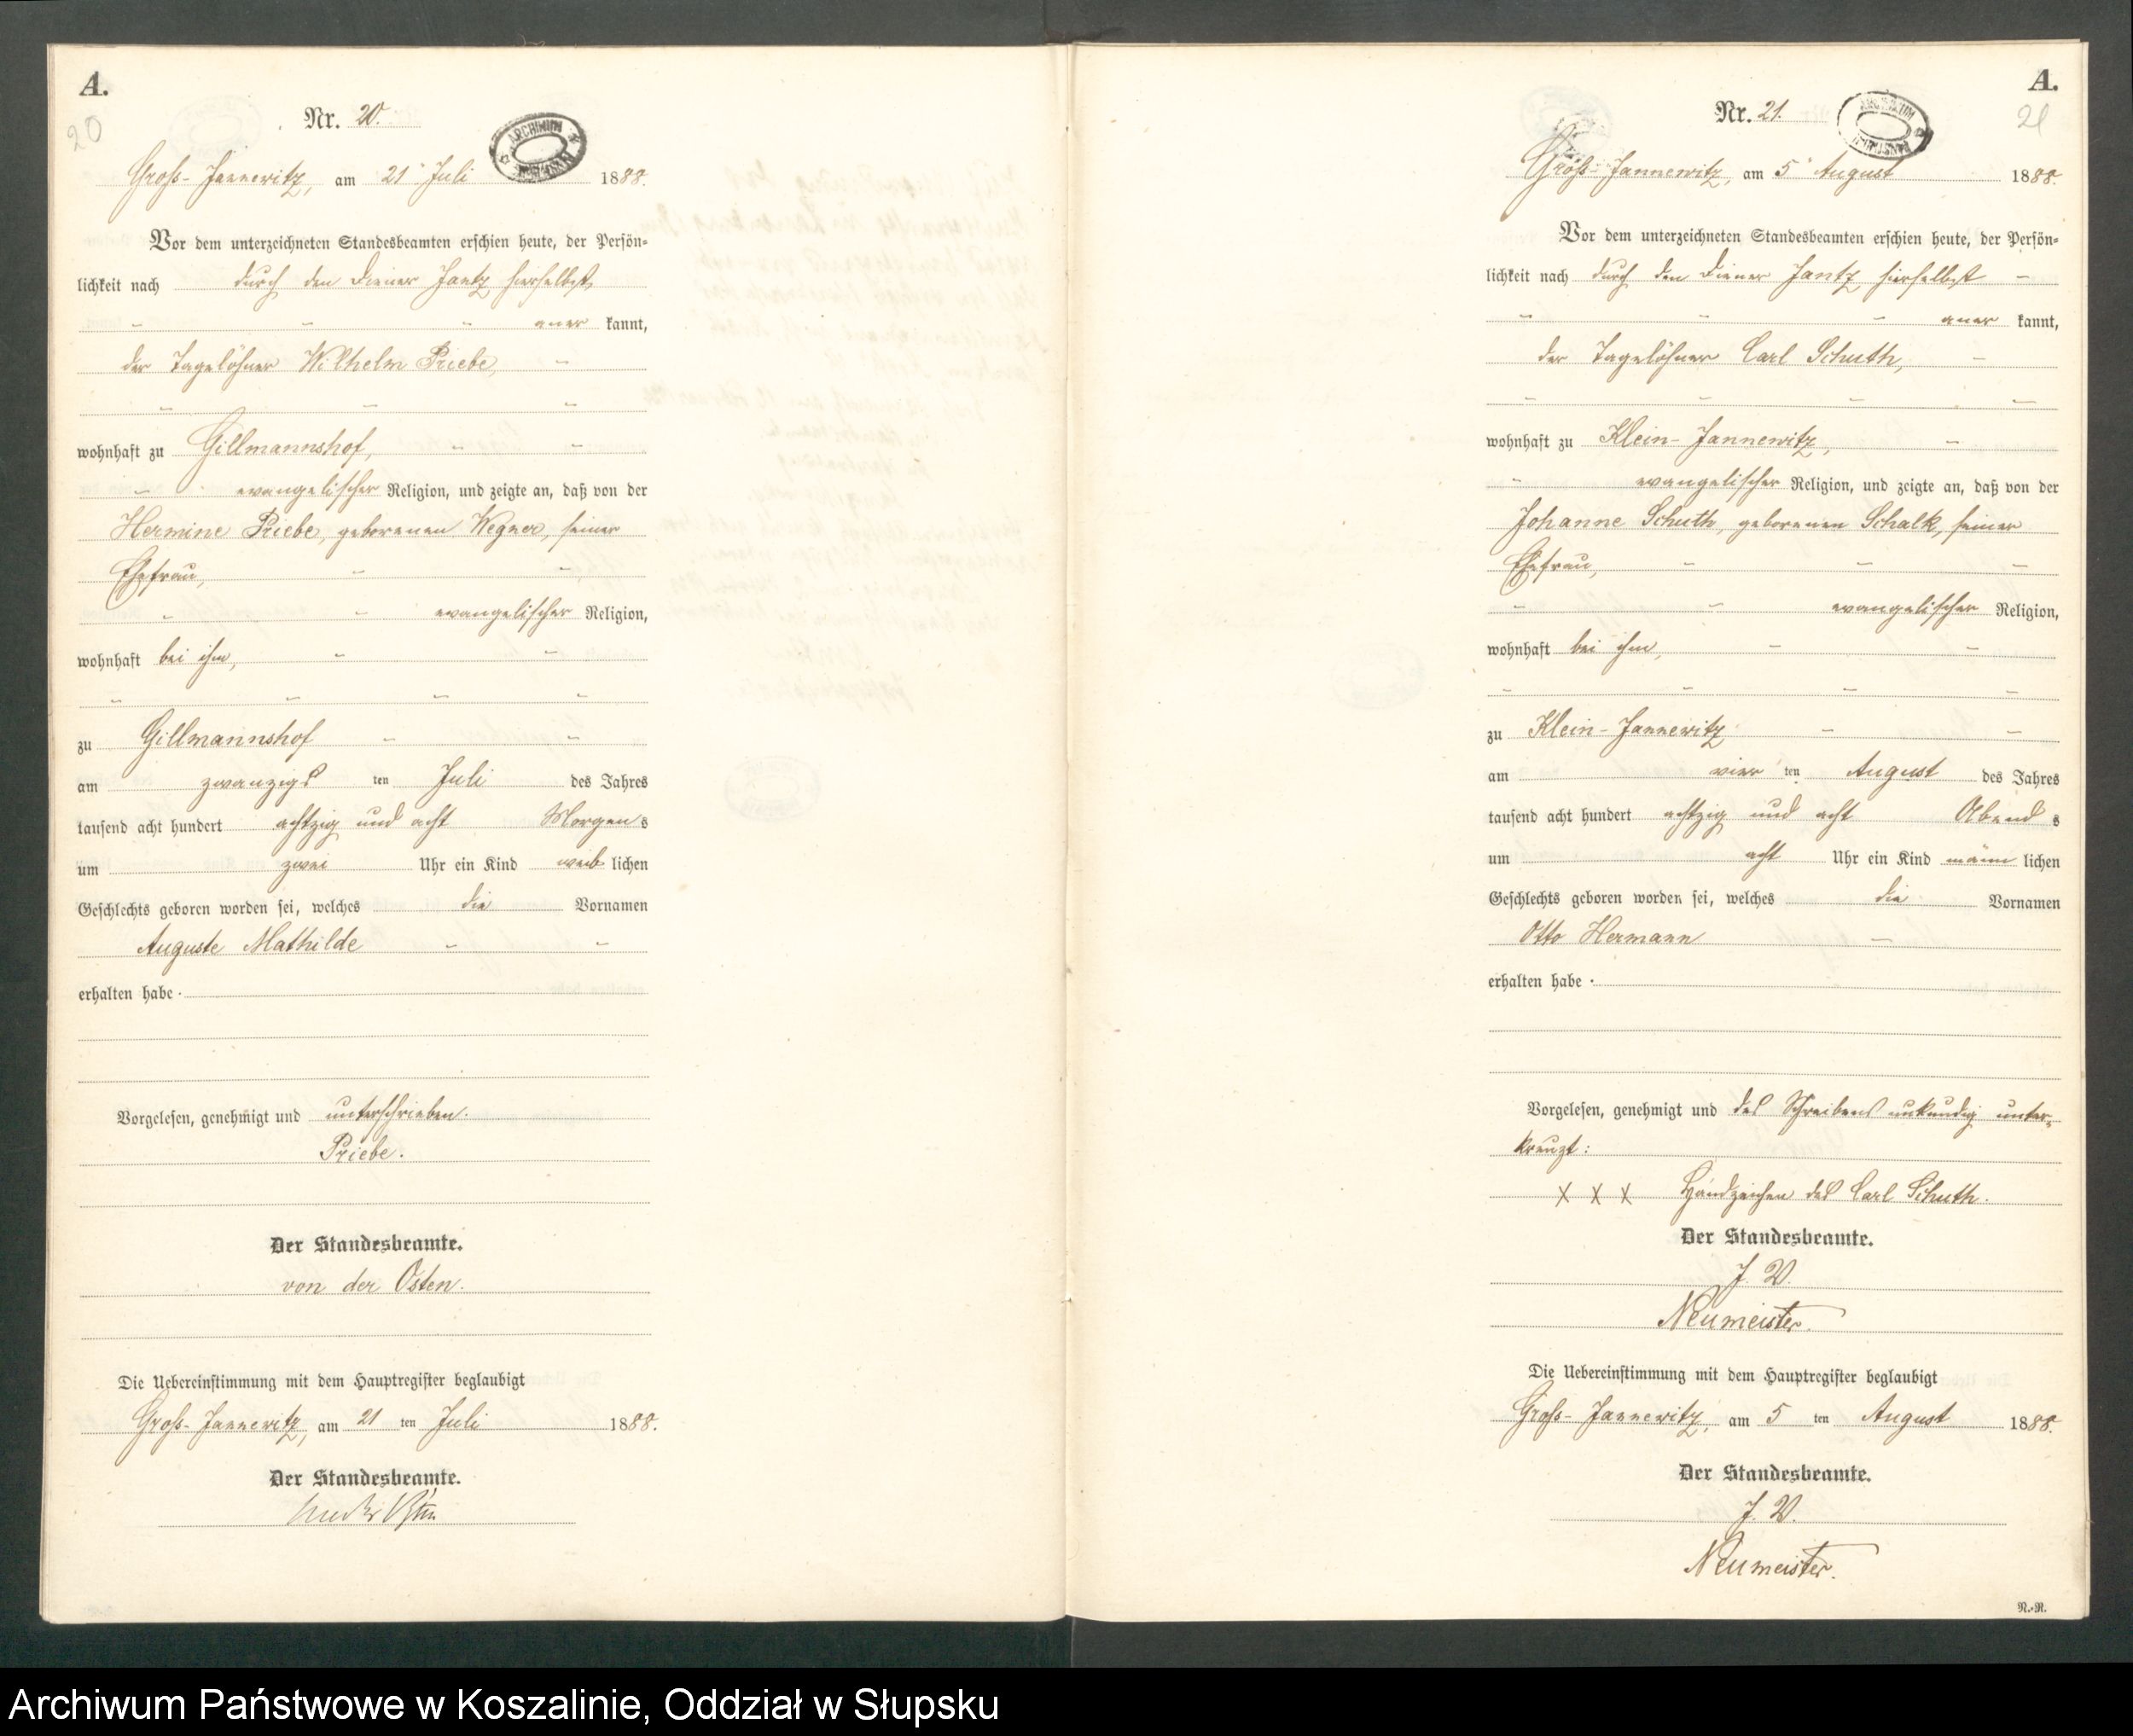 A.
20
Nr. 20.
ARCHIWUM
Gross-Jannewitz, am 21 Juli 1888.
Vor dem unterzeichneten Standesbeamten erschien heute, der Persön-
lichkeit nach durch den Diener Jantz hierselbst
aner kannt,
der Tagelöhner Wilhelm Priebe,
wohnhaft zu Gillmannshof,
evangelischer Religion, und zeigte an, daß von der
Hermine Priebe, geborenen Wegner, seiner
Ehefrau,
evangelischer Religion,
wohnhaft bei ihm,
zu Gillmannshof
am zwanzigs ten Juli des Jahres
tausend acht hundert achtzig und acht Morgens
um zwei Uhr ein Kind weib lichen
Geschlechts geboren worden sei, welches die Vornamen
Auguste Mathilde
erhalten habe.
Vorgelesen, genehmigt und unterschrieben.
Priebe.
Der Standesbeamte.
von der Osten.
Die Uebereinstimmung mit dem Hauptregister beglaubigt
Gross-Jannewitz, am 21 ten Juli 1888.
Der Standesbeamte.
von der Osten
A.
21
Nr. 21.
ARCHIWUM
Gross-Jannewitz, am 5 August 1888.
Vor dem unterzeichneten Standesbeamten erschien heute, der Persön-
lichkeit nach durch den Diener Jantz hierselbst
aner kannt,
der Tagelöhner Carl Schuth,
wohnhaft zu Klein-Jannewitz,
evangelischer Religion, und zeigte an, daß von der
Johanne Schuth, geborenen Schalk, seiner
Ehefrau,
evangelischer Religion,
wohnhaft bei ihm,
zu Klein-Jannewitz
am vier ten August des Jahres
tausend acht hundert achtzig und acht Abends
um acht Uhr ein Kind männ lichen
Geschlechts geboren worden sei, welches die Vornamen
Otto Hermann
erhalten habe.
Vorgelesen, genehmigt und des Schreibens unkundig unter-
kreuzt:
X X X Handzeichen des Carl Schuth.
Der Standesbeamte.
J. V.
Neumeister.
Die Uebereinstimmung mit dem Hauptregister beglaubigt
Gross-Jannewitz, am 5 ten August 1888.
Der Standesbeamte.
J. V.
Neumeister.
N.-R.
Archiwum Państwowe w Koszalinie, Oddział w Słupsku